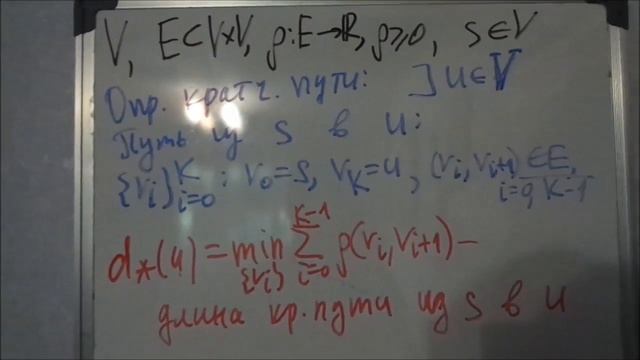 V, E⊂V×V, ρ:E→ℝ, ρ≥0, s∈V
Опр. кратч. пути: ]u∈V
Путь из s в u:
{vᵢ}ᵢ₌₀ᴷ: v₀=s, v_K=u, (vᵢ,vᵢ₊₁)∈E, i=0,K-1
d*(u) = min_{vᵢ} ∑ᵢ₌₀ᴷ⁻¹ ρ(vᵢ,vᵢ₊₁) –
длина кр. пути из s в u